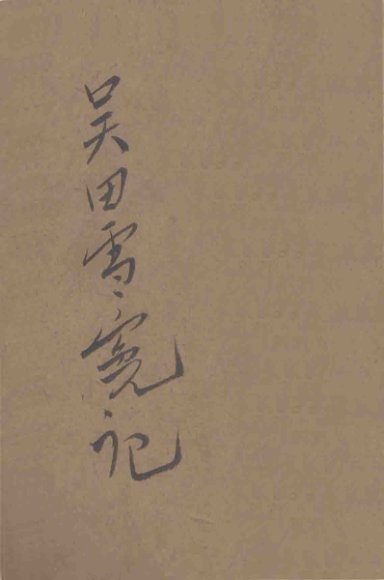 吴田雪寃记